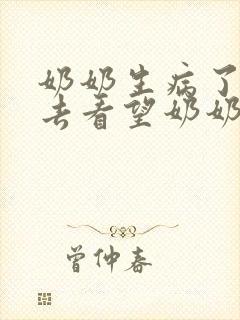 奶奶生病了
去看望奶奶
曾仲春